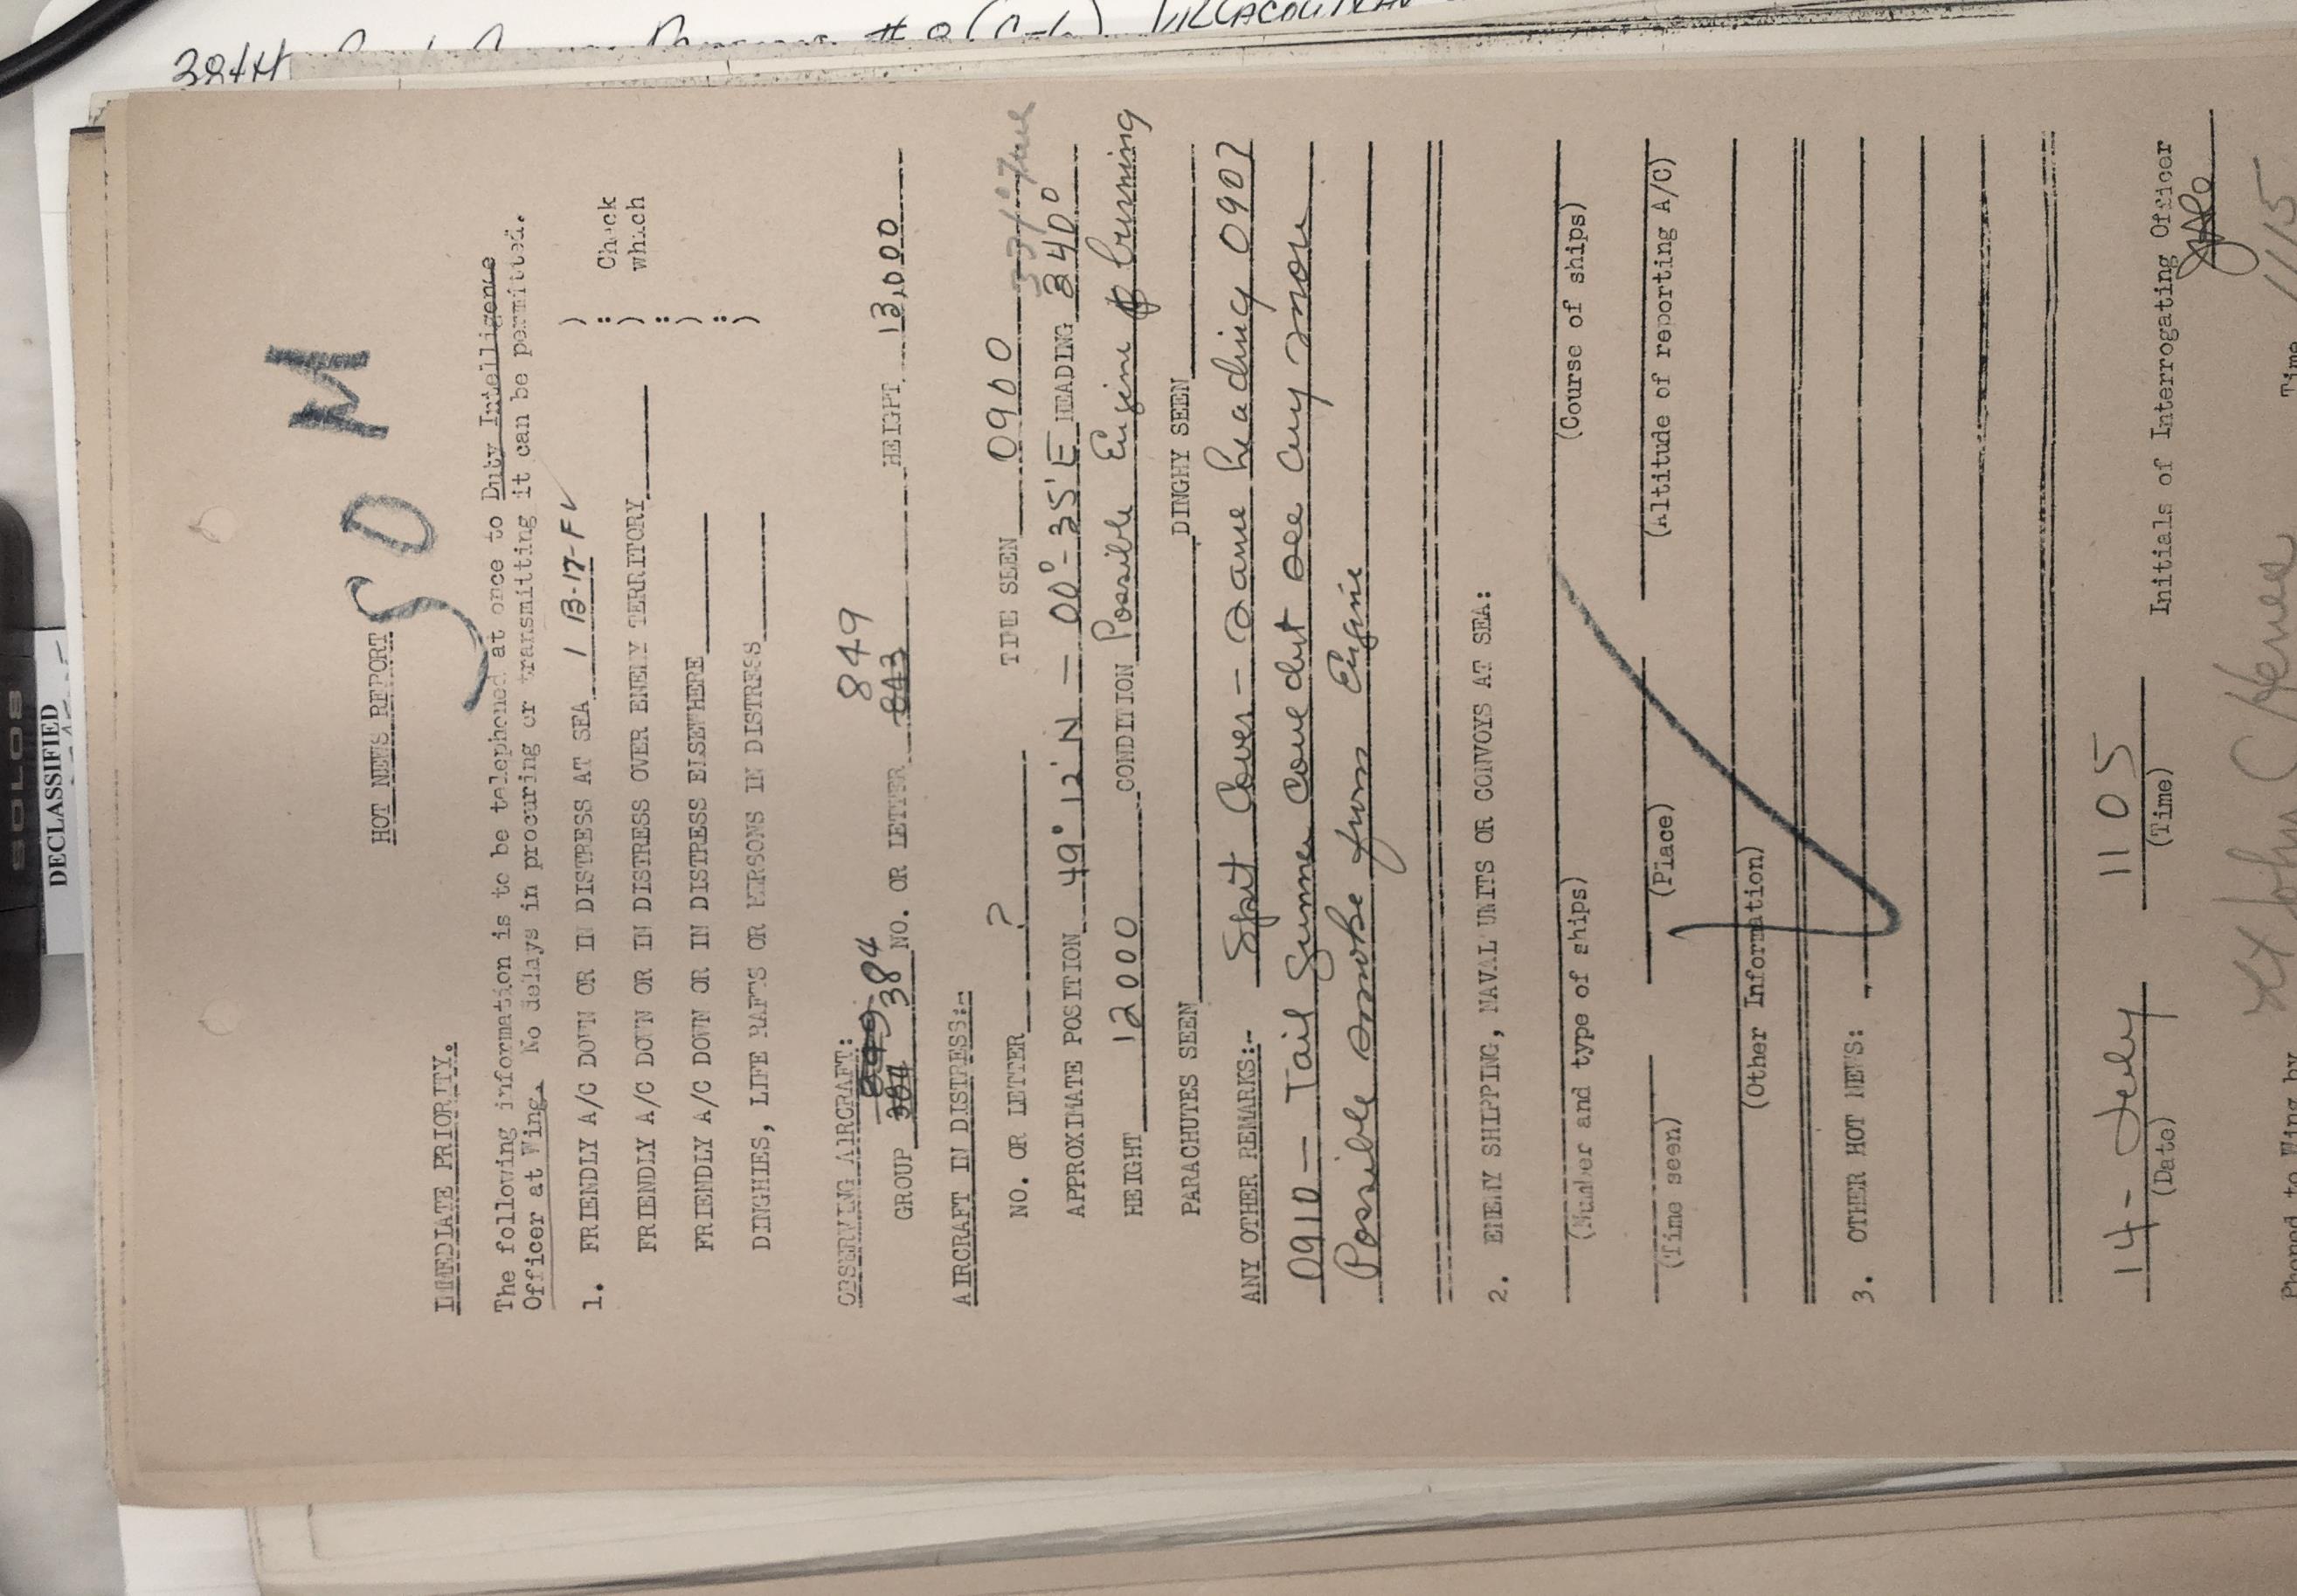 SOLO8
DECLASSIFIED
384TH # 8 (C-6) VILLACOUBLAY
HOT NEWS REPORT
S O M
IMMEDIATE PRIORITY.
The following information is to be telephoned at once to Duty Intelligence
Officer at Wing. No delays in procuring or transmitting it can be permitted.
1. FRIENDLY A/C DOWN OR IN DISTRESS AT SEA 1 B-17-F ✓ )
: Check
FRIENDLY A/C DOWN OR IN DISTRESS OVER ENEMY TERRITORY ) which
:
FRIENDLY A/C DOWN OR IN DISTRESS ELSEWHERE )
:
DINGHIES, LIFE RAFTS OR PERSONS IN DISTRESS )
OBSERVING AIRCRAFT: 849
GROUP 384 NO. OR LETTER 843 HEIGHT 13,000
AIRCRAFT IN DISTRESS:-
NO. OR LETTER ? TIME SEEN 0900 331° True
APPROXIMATE POSITION 49° 12' N — 00° - 35' E HEADING 340°
HEIGHT 12000 CONDITION Possible Engine burning
PARACHUTES SEEN DINGHY SEEN
ANY OTHER REMARKS:- Spit Cover - same heading 0907
0910 - Tail Gunner could see any more
Possible smoke from Engine
2. ENEMY SHIPPING, NAVAL UNITS OR CONVOYS AT SEA:
(Number and type of ships) (Course of ships)
(Time seen) (Place) (Altitude of reporting A/C)
(Other Information)
3. OTHER HOT NEWS:
14 - July 1105 Initials of Interrogating Officer
(Date) (Time)
Phoned to Wing by Lt John C Time 1115